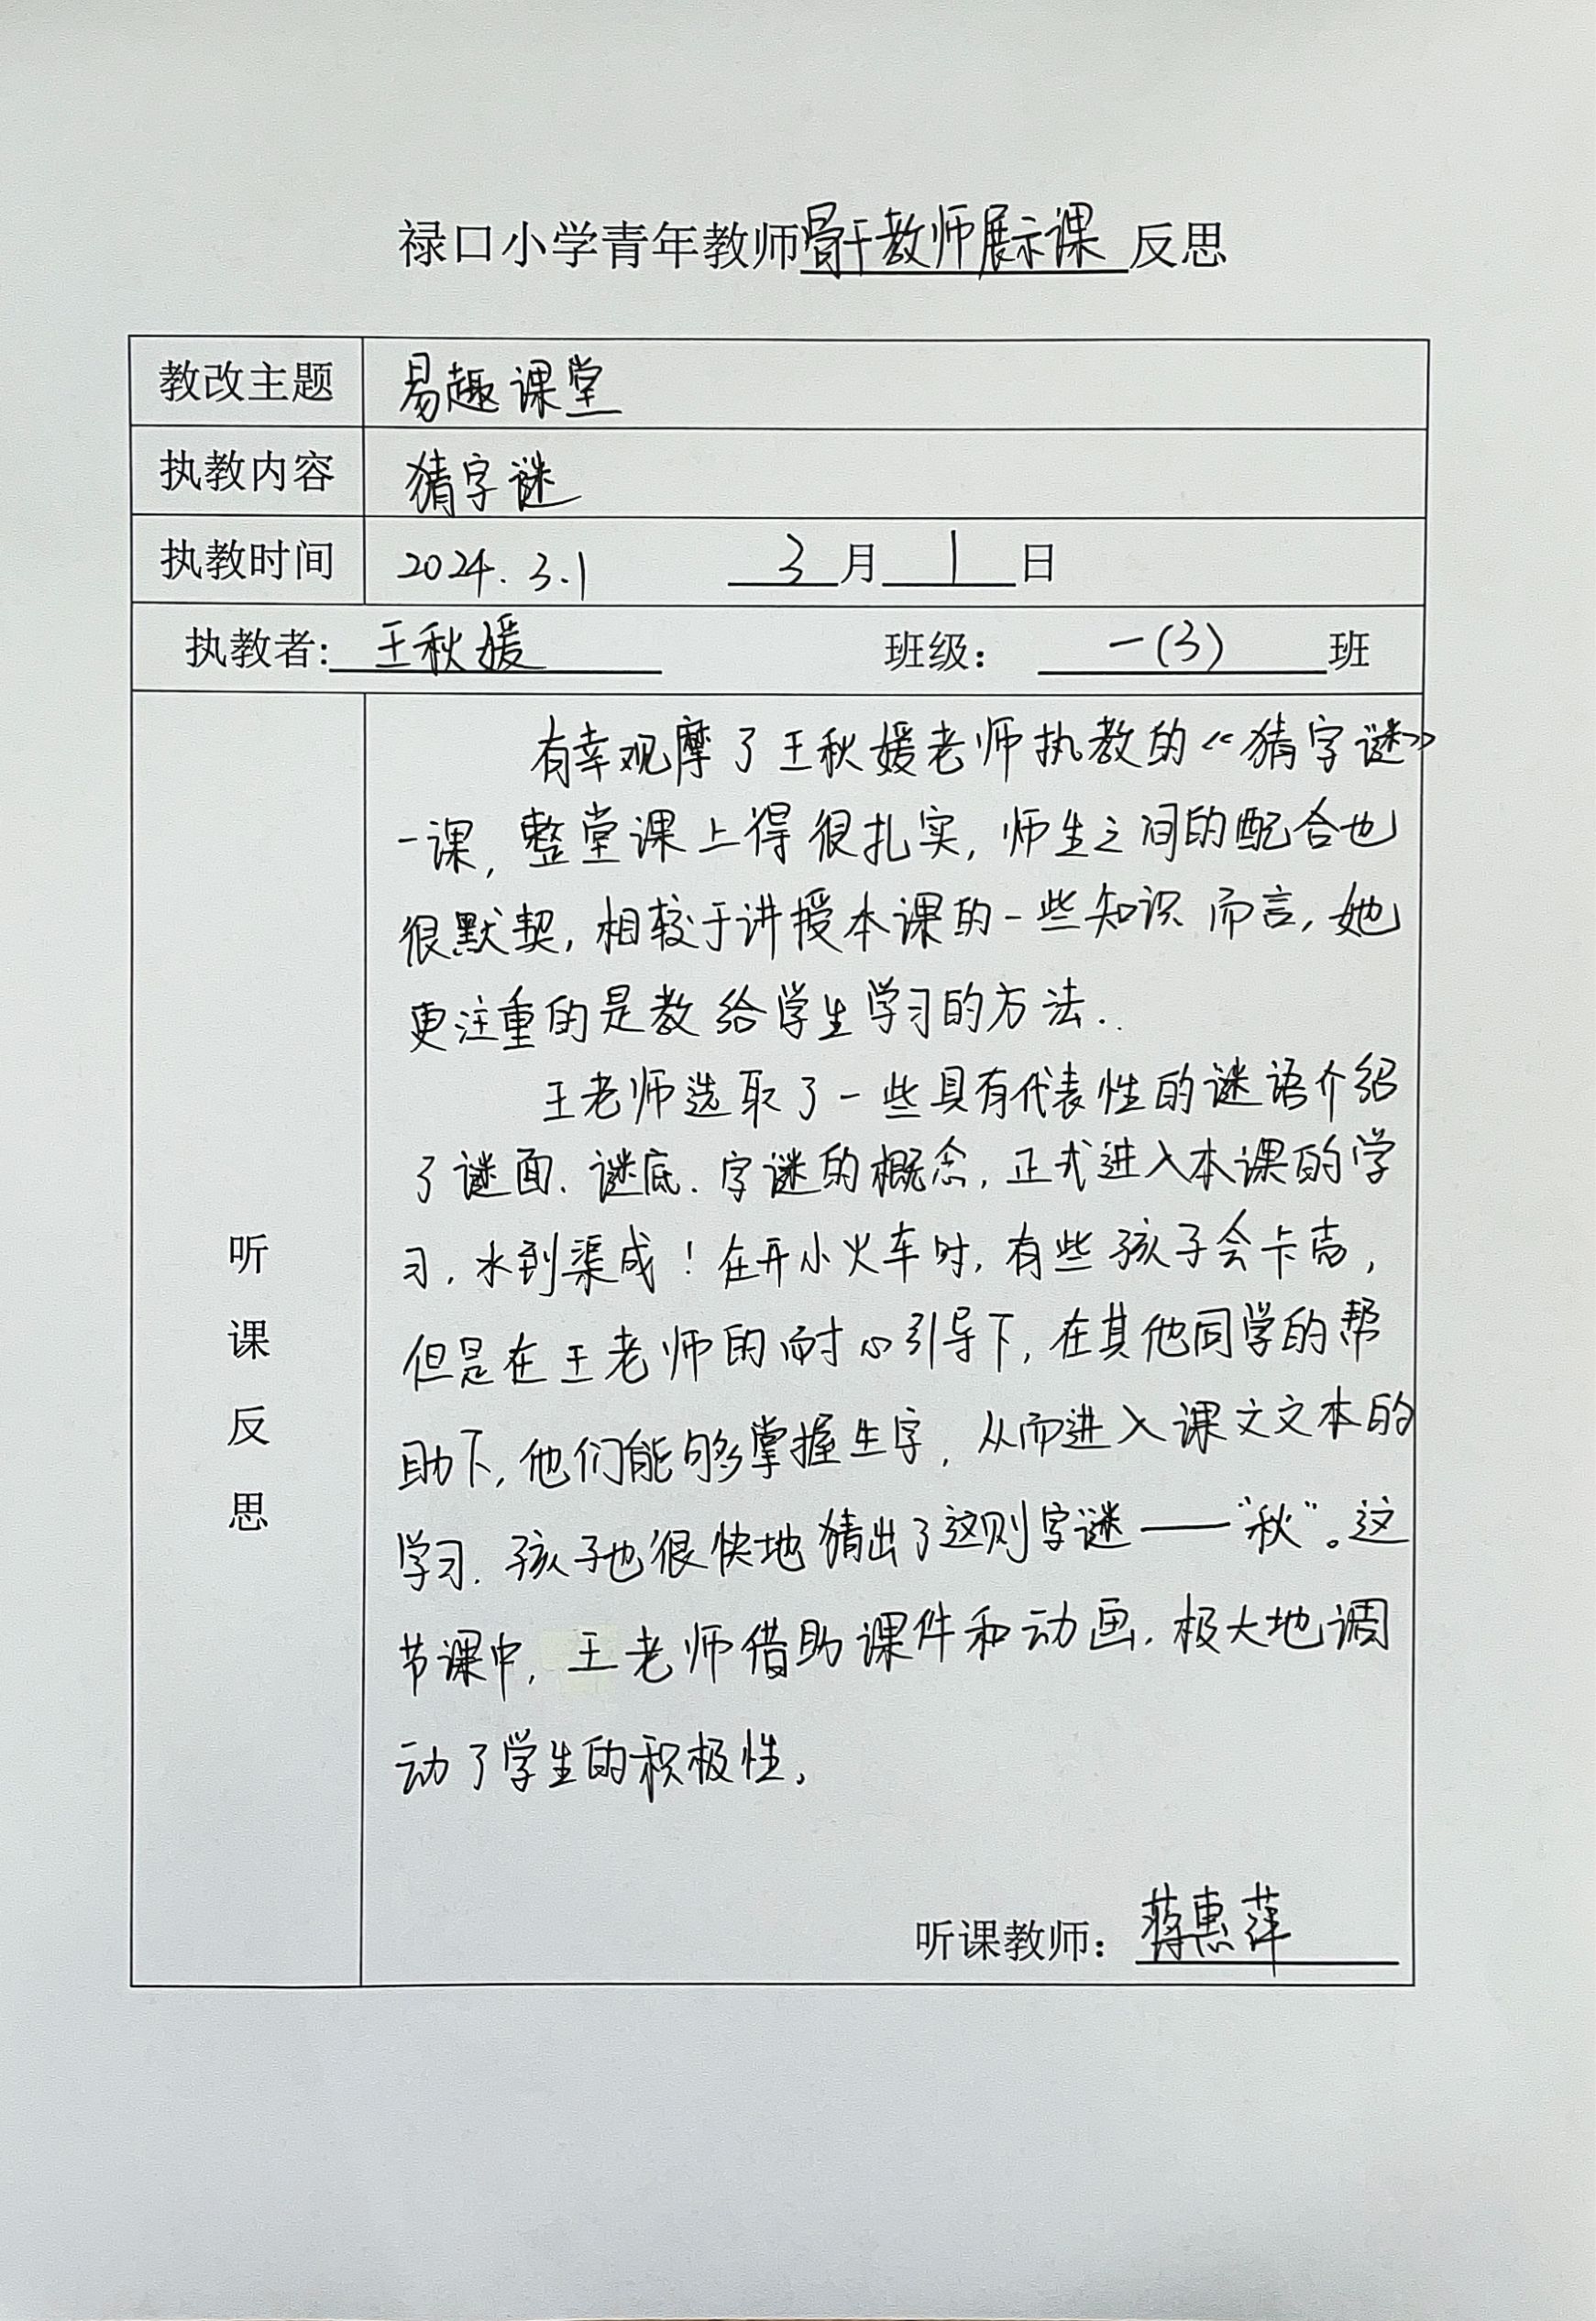 禄口小学青年教师骨干教师展示课反思
教改主题 易趣课堂
执教内容 猜字谜
执教时间 2024.3.1 3月1日
执教者:王秋媛 班级：一(3)班
听课反思
有幸观摩了王秋媛老师执教的《猜字谜》
一课,整堂课上得很扎实,师生之间的配合也
很默契,相较于讲授本课的一些知识而言,她
更注重的是教给学生学习的方法..
王老师选取了一些具有代表性的谜语介绍
了谜面、谜底、字谜的概念,正式进入本课的学
习,水到渠成！在开小火车时,有些孩子会卡壳,
但是在王老师的耐心引导下,在其他同学的帮
助下,他们能够掌握生字,从而进入课文文本的
学习.孩子也很快地猜出了这则字谜——“秋”。这
节课中,王老师借助课件和动画,极大地调
动了学生的积极性。
听课教师：蒋惠萍